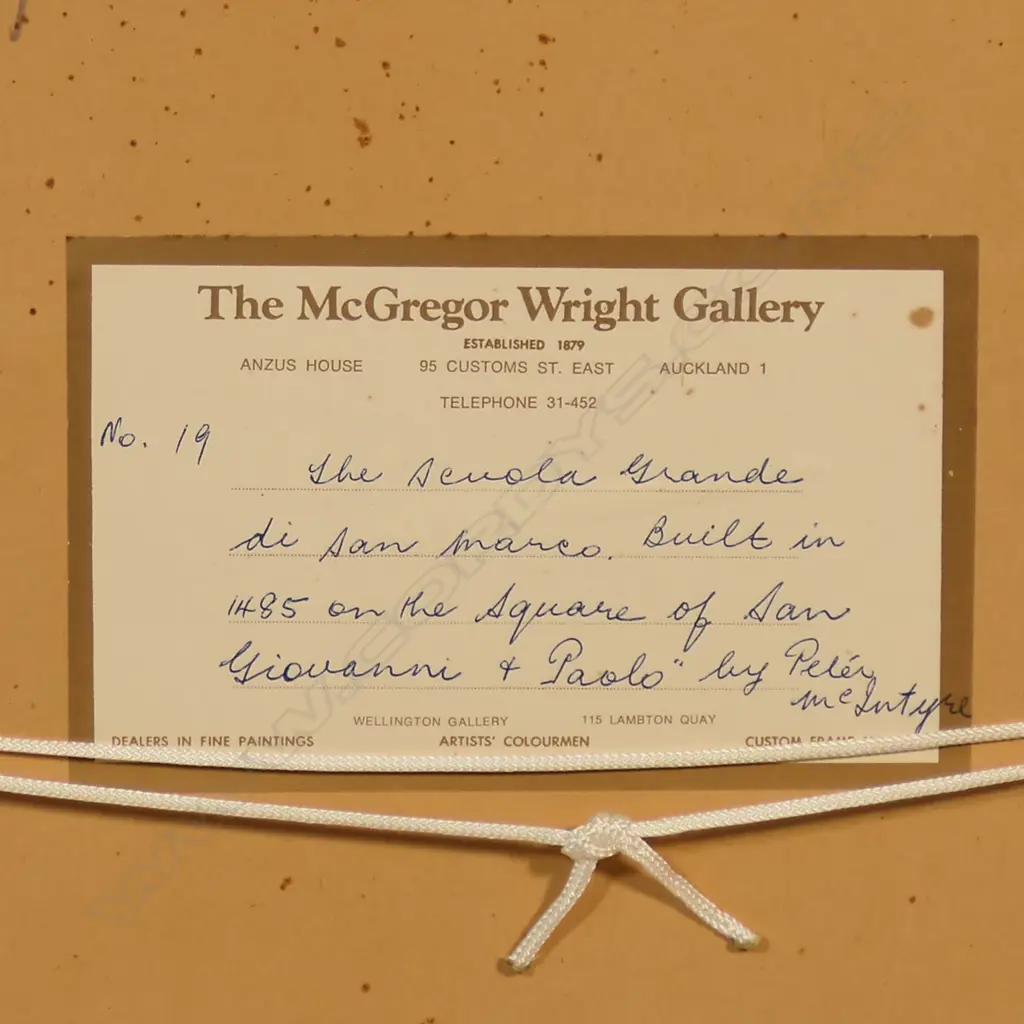 The McGregor Wright Gallery
ESTABLISHED 1879
ANZUS HOUSE 95 CUSTOMS ST. EAST AUCKLAND 1
TELEPHONE 31-452
No. 19
The Scuola Grande
di San Marco. Built in
1485 on the Square of San
Giovanni & Paolo" by Peter
McIntyre
WELLINGTON GALLERY 115 LAMBTON QUAY
DEALERS IN FINE PAINTINGS ARTISTS' COLOURMEN CUSTOM